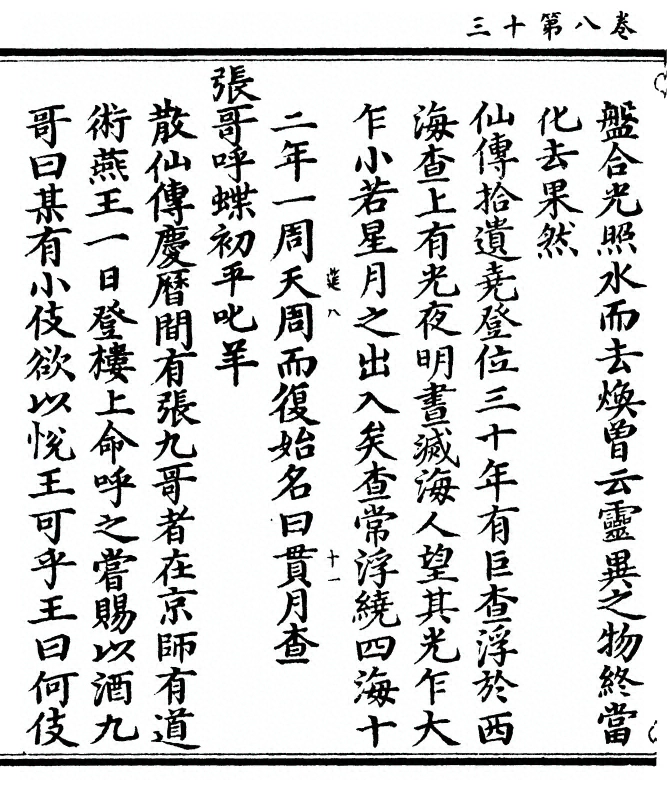 三十第八卷
盤合光照水而去煥曾云靈異之物終當
化去果然
仙傳拾遺堯登位三十年有巨查浮於西
海查上有光夜明晝滅海人望其光乍大
乍小若星月之出入矣查常浮繞四海十
二年一周天周而復始名曰貫月查
張哥呼蝶初平叱羊
散仙傳慶曆間有張九哥者在京師有道
術燕王一日登樓上命呼之嘗賜以酒九
哥曰某有小伎欲以悅王可乎王曰何伎
八
十一